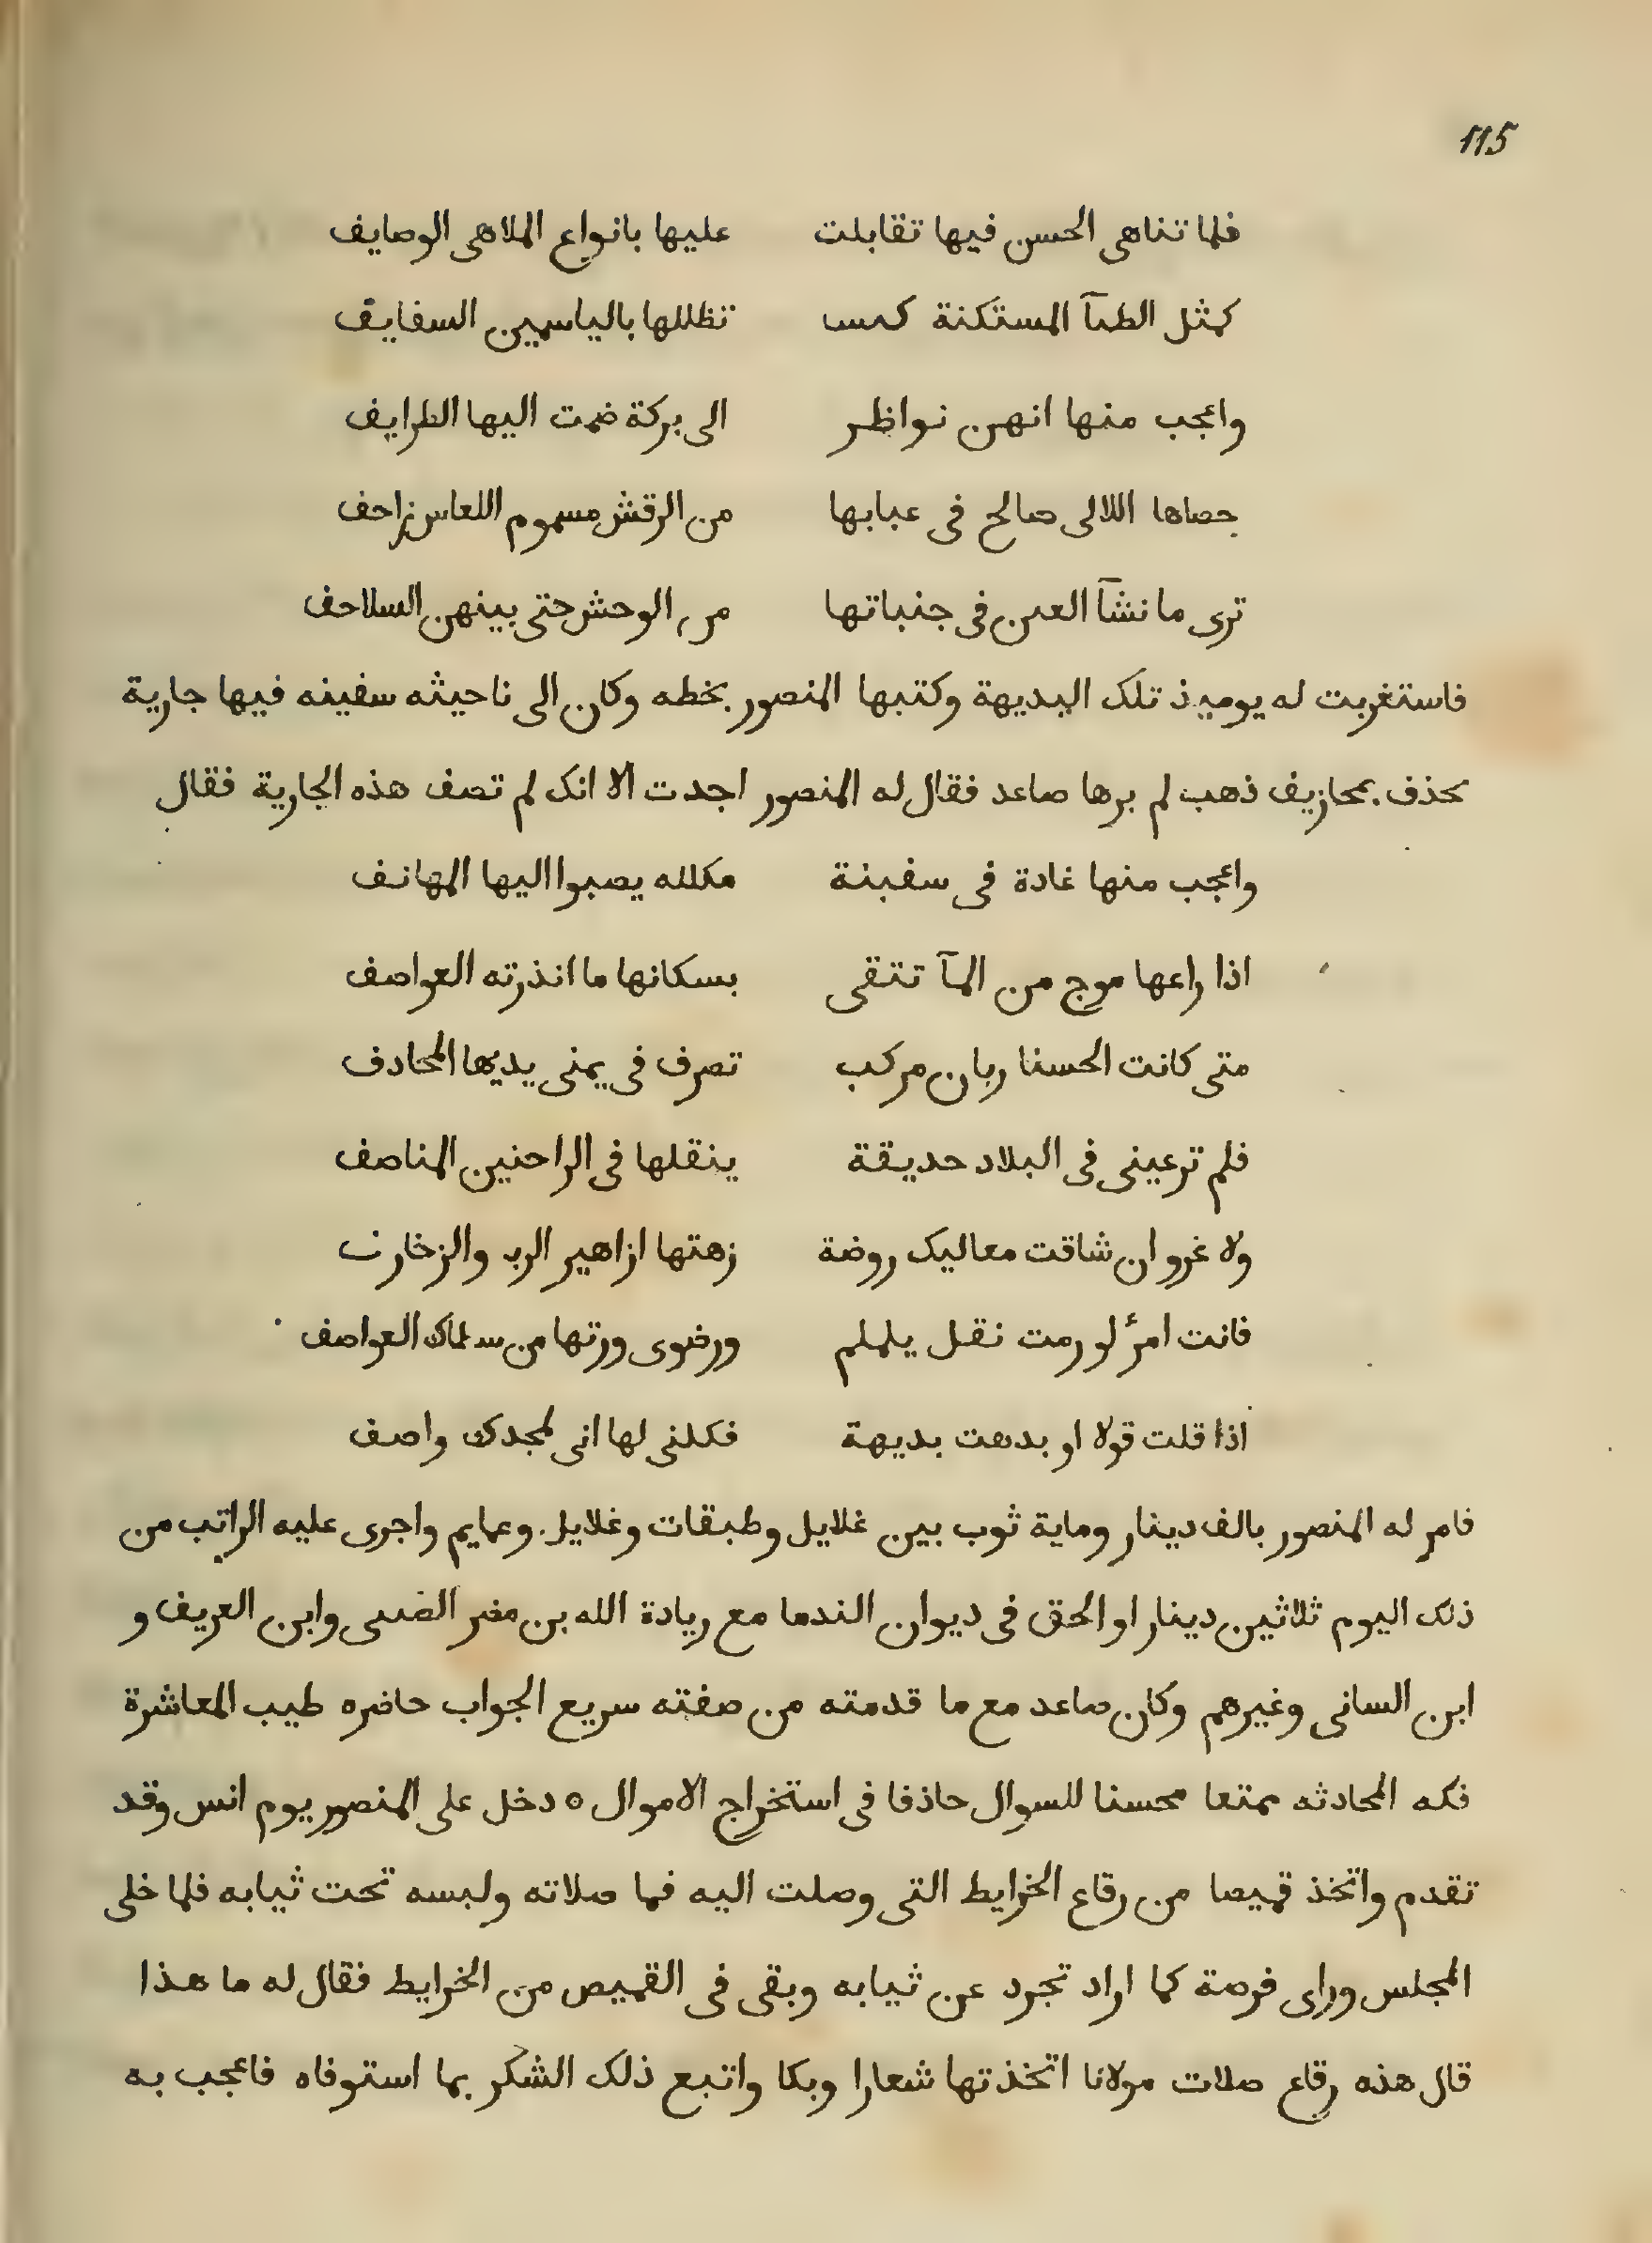 115
فلما تناهى الحسن فيها تقابلت عليها بانواع الملاهى الوصايف
كمثل الظبآ المستكنة كنسا تظللها بالياسمين السفايف
واعجب منها انهن نواظر الى بركة ضمت اليها الطرايف
حصاها اللالى صالح فى عبابها من الرقش مسموم اللعاس زاحف
ترى ما نشآ العين فى جنباتها من الوحش حتى بينهن السلاحف
فاستغربت له يوميذ تلك البديهة وكتبها المنصور بخطه وكان الى ناحيته سفينه فيها جارية
تحذف بمحازيف ذهب لم يرها صاعد فقال له المنصور اجدت الا انك لم تصف هذه الجارية فقال
واعجب منها غادة فى سفينة مكلله يصبوا اليها المهانف
اذا راعها موج من المآ تتقى بسكانها ما انذرته العواصف
متى كانت الحسنا ربان مركب تصرف فى يمنى يديها المحادف
فلم ترعينى فى البلاد حديقة ينقلها فى الراحتين المناصف
ولا غرو ان شاقت معاليك روضة زهتها ازاهير الربـ والزخارف
فانت امرٔ لو رمت نقل يلملم ورضوى ورتها من العواصف
اذا قلت قولا او بدهت بديهة فكلنى لها انى لمجدك واصف
فامر له المنصور بالف دينار وماية ثوب بين غلايل وطبقات وغلايل وعمايم واجرى عليه الراتب من
ذلك اليوم ثلاثين دينار او الحق فى ديوان الندما مع ريادة الله بن مضر الضبى وابن العريف و
ابن السانى وغيرهم وكان صاعد مع ما قدمته من صفته سريع الجواب حاضره طيب المعاشرة
فكه المحادثه ممتعا محسنا للسوال حاذفا فى استخراج الاموال ٥ دخل على المنصور يوم انس وقد
تقدم واتخذ قميصا من رقاع الخرايط التى وصلت اليه فما صلاته ولبسه تحت ثيابه فلما خلى
المجلس وراى فرصة كما اراد تجرد عن ثيابه وبقى فى القميص من الخرايط فقال له ما هذا
قال هذه رقاع صلات مولانا اتخذتها شعارا وبكا واتبع ذلك الشكر بما استوفاه فاعجب به